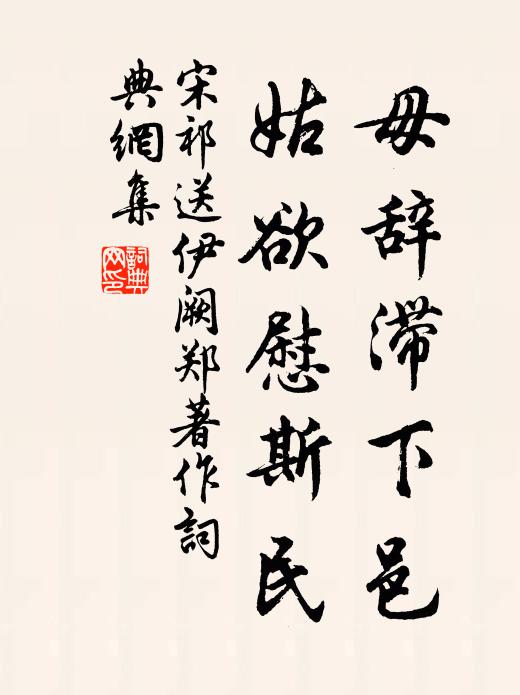 毋辞滞下邑
姑欲慰斯民
宋祁送伊阙郑著作詞
典網集
詞典網印